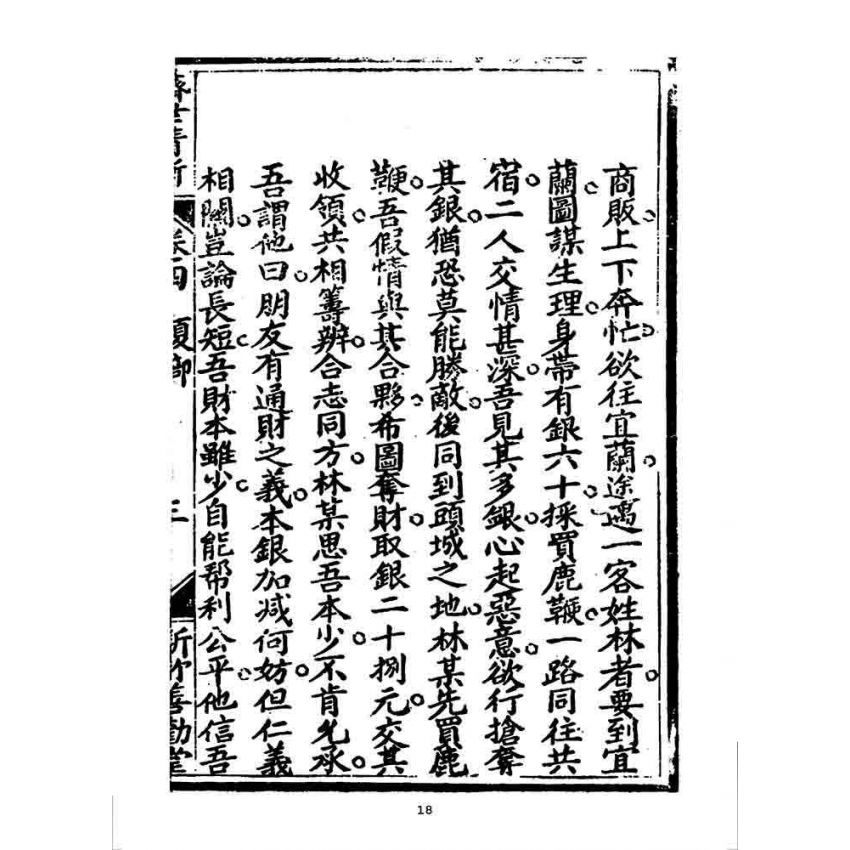 商販。上下奔忙。欲往宜蘭。途遇一客姓林者。要到宜
蘭。圖謀生理。身帶有銀六十。採買鹿鞭。一路同往共
宿。二人交情甚深。吾見其多銀。心起惡意。欲行搶奪
其銀。猶恐莫能勝敵。後同到頭城之地。林某先買鹿
鞭。吾假情與其合夥。希圖奪財。取銀二十捌元。交其
收領。共相籌辨。合志同方。林某思吾本少。不肯允承。
吾謂他曰。朋友有通財之義。本銀加減何妨。但仁義
相關。豈論長短。吾財本雖少。自能帮利公平。他信吾
濟世清新 卷四 三 新竹善勸堂
18